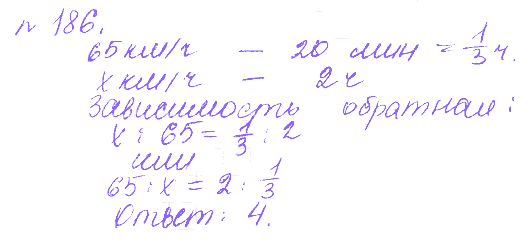 № 186.
65 км/ч — 20 мин = 1/3 ч.
х км/ч — 2 ч
Зависимость обратная:
х : 65 = 1/3 : 2
или
65 : х = 2 : 1/3
Ответ: 4.